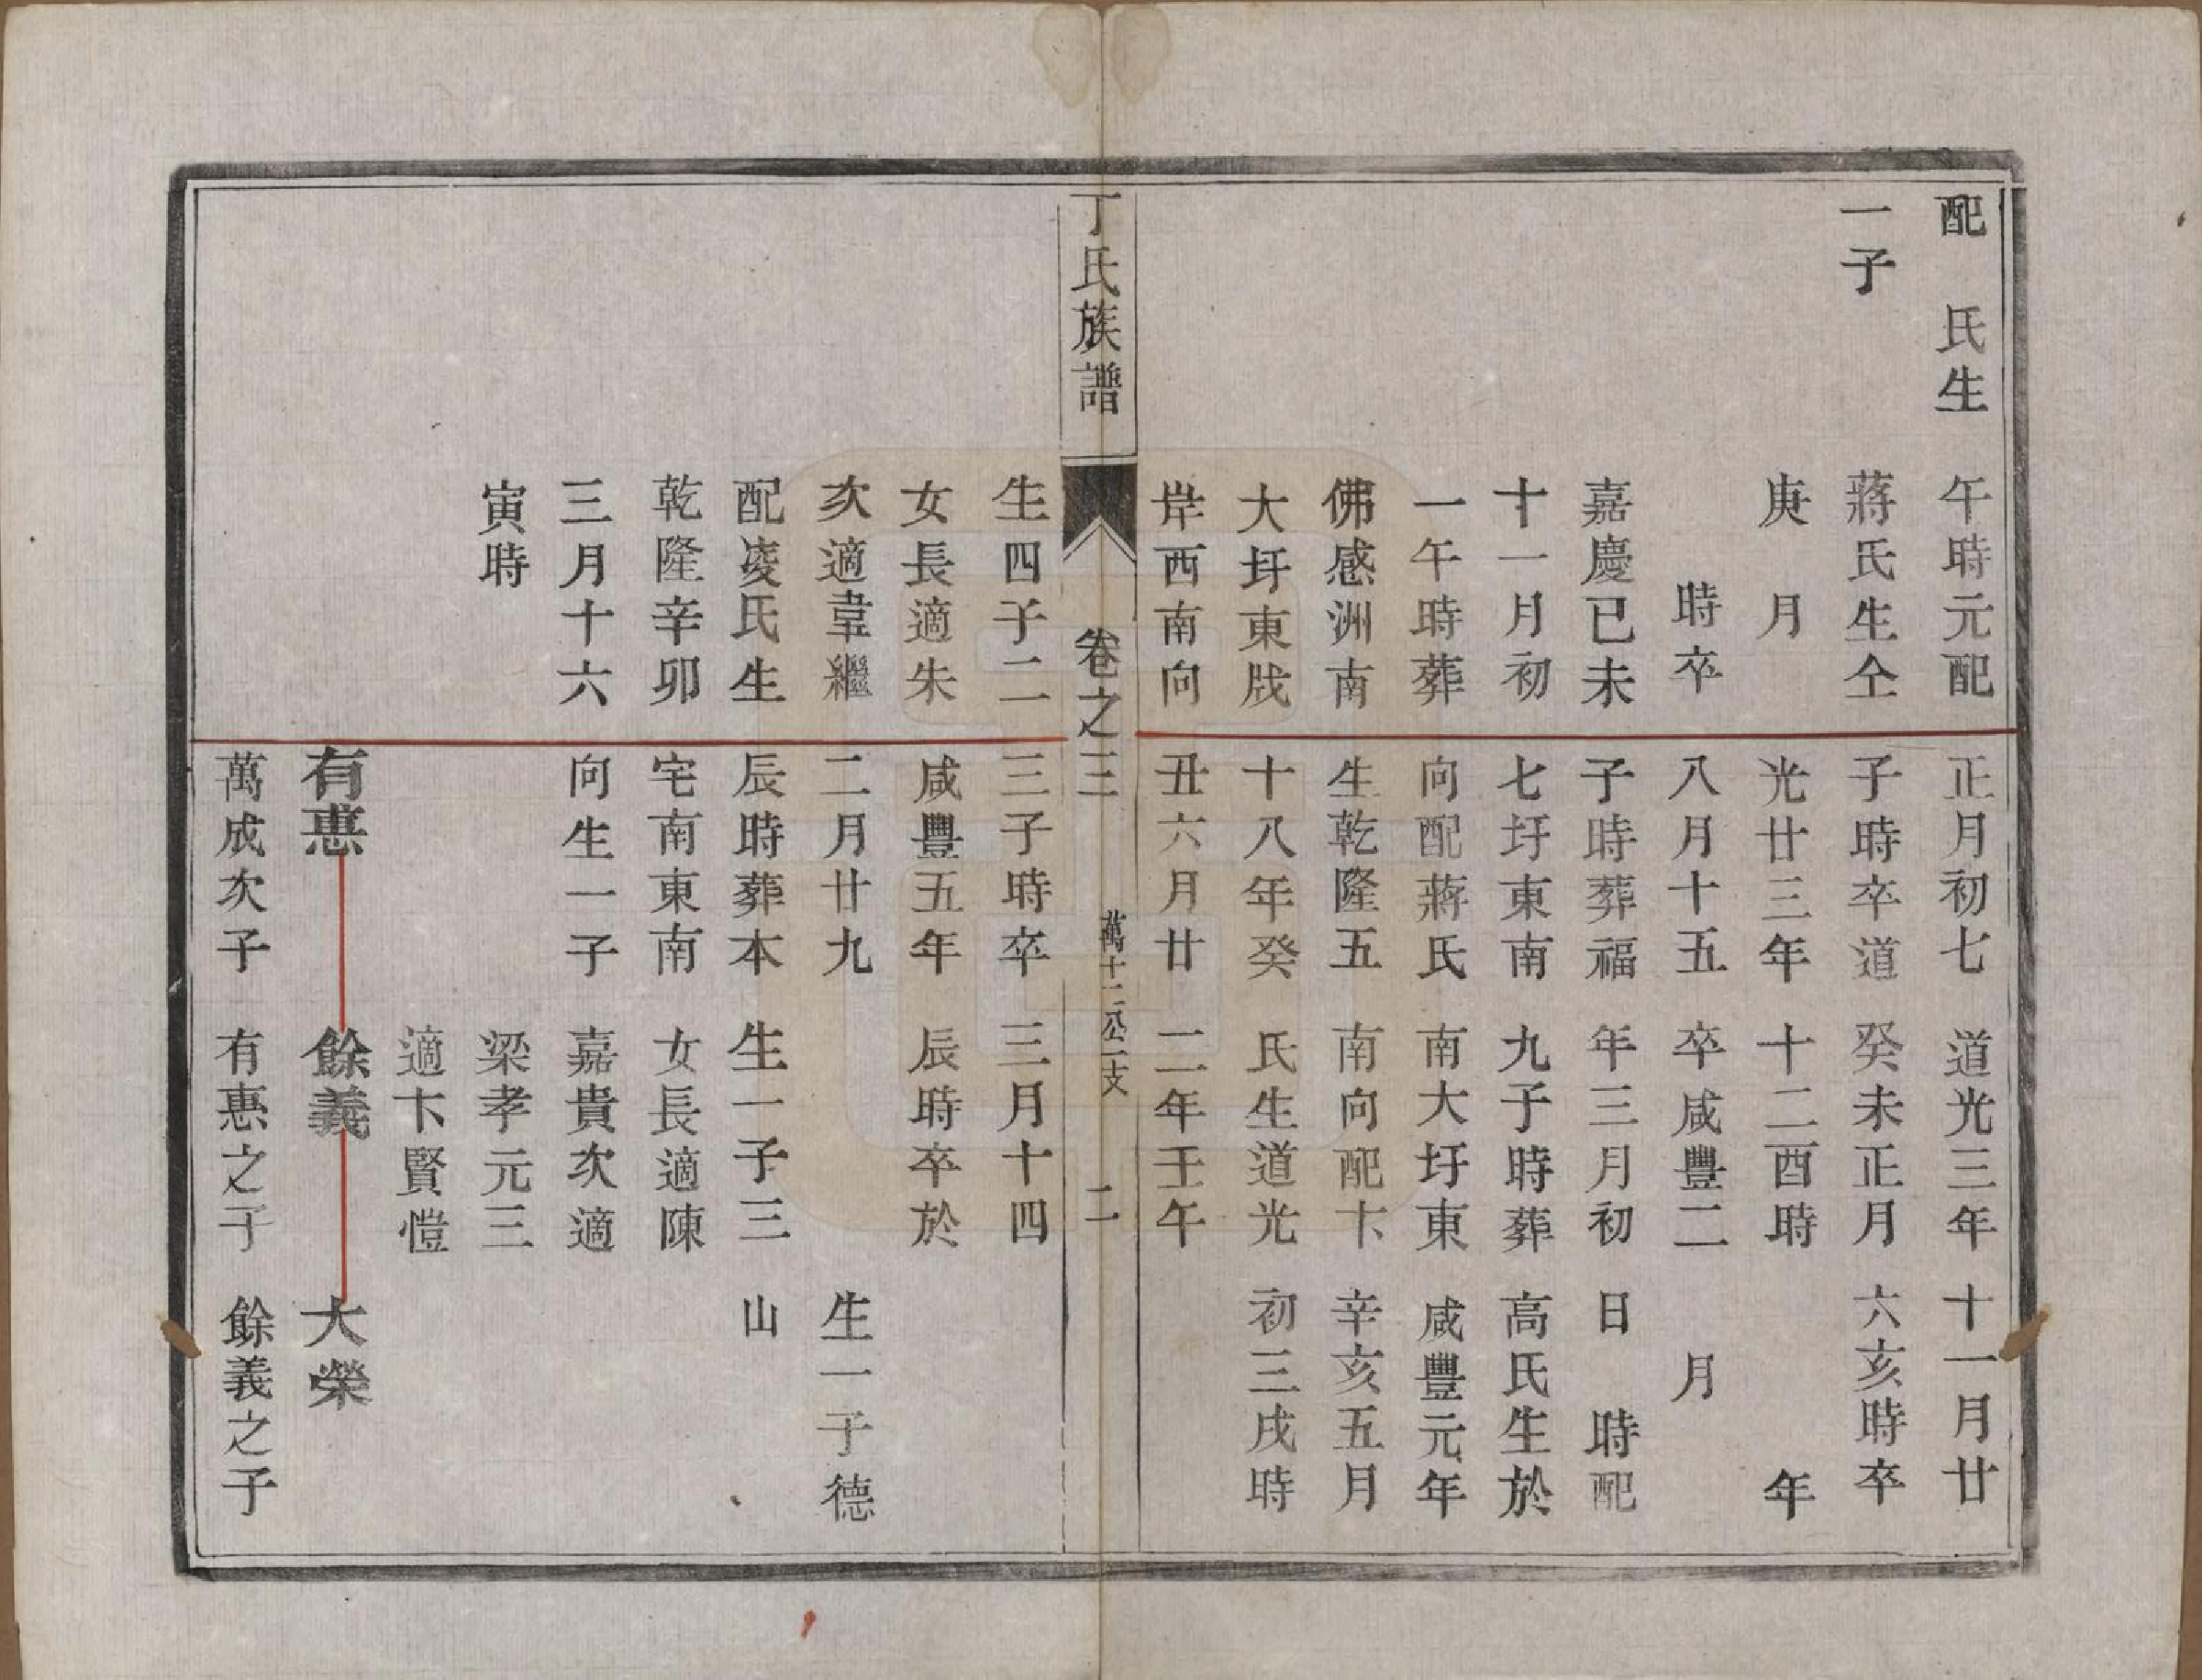 配　氏生
一子
午時元配
蔣氏生仝
庚　月
時卒
嘉慶已未
十一月初
一午時葬
佛感洲南
大圩東戌
岸西南向
生四子二
女長適朱
次適韋繼
配凌氏生
乾隆辛卯
三月十六
寅時
正月初七
子時卒道
光廿三年
八月十五
子時葬福
七圩東南
向配蔣氏
生乾隆五
十八年癸
丑六月廿
三子時卒
咸豐五年
二月廿九
辰時葬本
宅南東南
向生一子
有惠
萬成次子
道光三年
癸未正月
十二酉時
卒咸豐二
年三月初
九子時葬
南大圩東
南向配卞
氏生道光
二年壬午
三月十四
辰時卒於
生一子三
女長適陳
嘉貴次適
梁孝元三
適卞賢愷
餘義
有惠之子
十一月廿
六亥時卒
年
月
日　時配
高氏生於
咸豐元年
辛亥五月
初三戌時
生一子德
山
大榮
餘義之子
丁氏族譜
卷之三
萬十二公二支
二